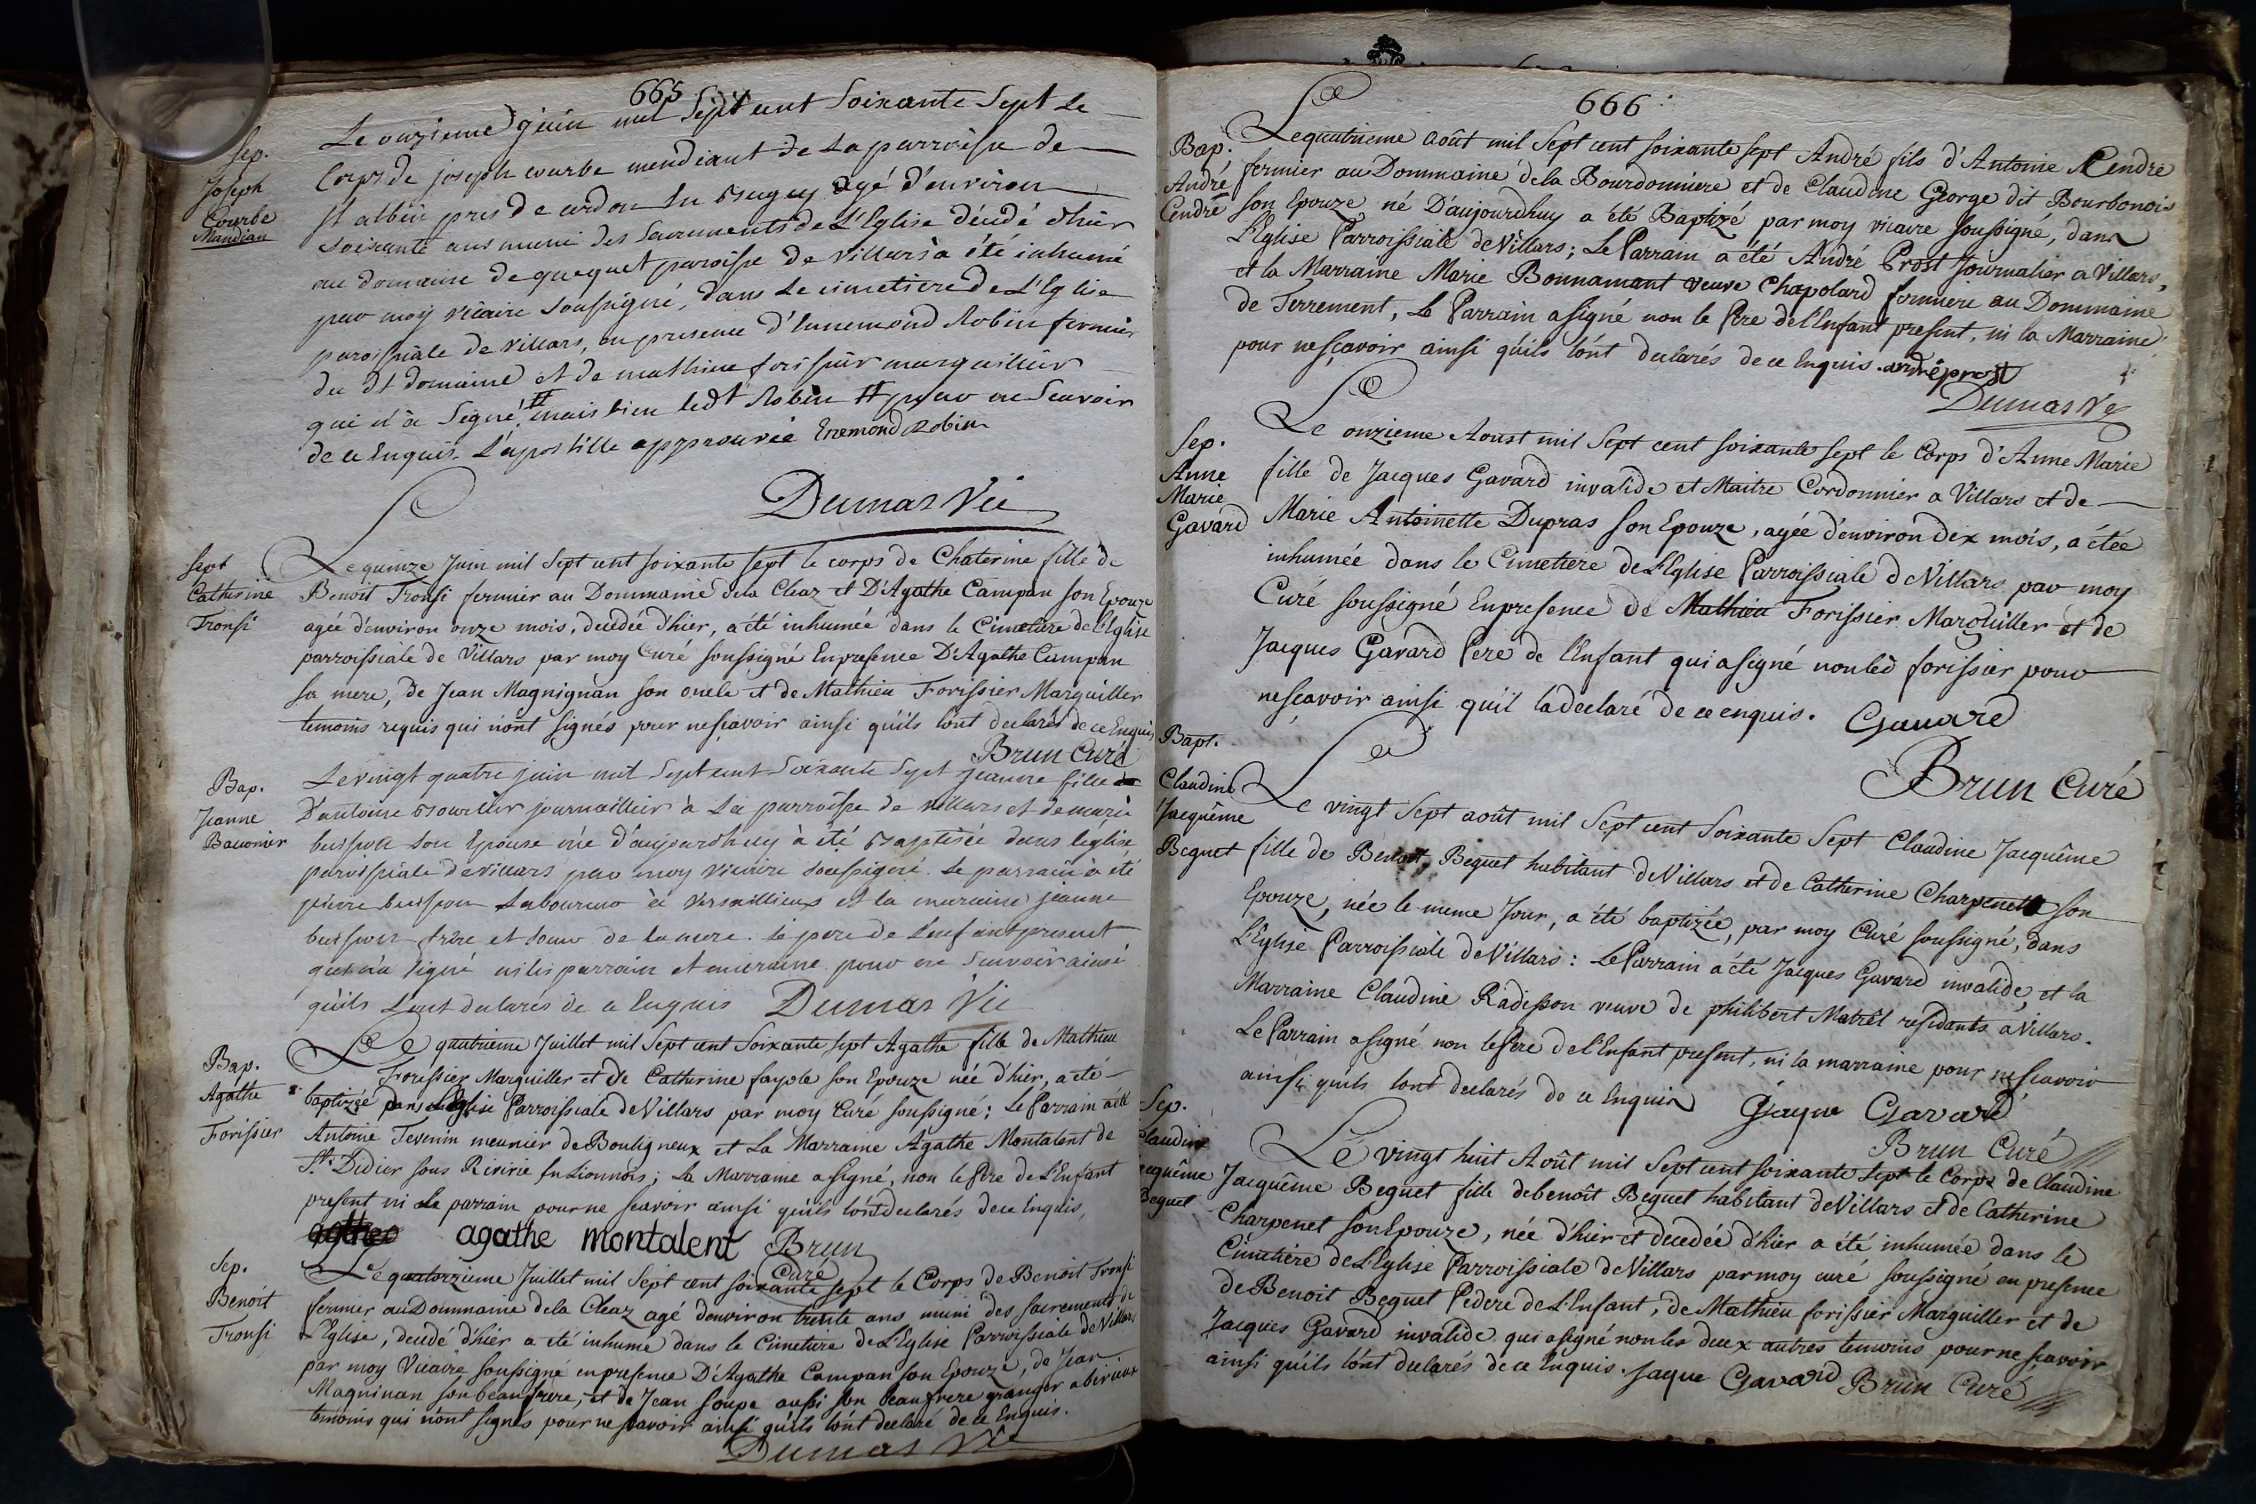 665
Sep.
Joseph
Courbe
Mandian
Le onzieme juin mil Sept cent Soixante Sept Le
Corps de joseph courbe mendiant de La parroisse de
St albin pres de cordon En Bugey agé d'environ
soixante ans muni des sacrements de L'Eglise décédé d'hier
au domaine de quequet paroisse de villars à été inhumé
par moy vicaire soussigné, dans Le cimetiere de L'Eglise
paroissiale de villars, en presence d'Ennemond Robin fermier
du dt domaine et de mathieu forissier marguillier
qui n'a Signé # mais bien ledt Robin # pour ne Scavoir
de ce Enquis. L'apostille approuvée Enemond Robin
Dumas Vic
Sept
Catherine
Tronsi
Le quinze Juin mil Sept cent soixante sept le corps de Chaterine fille de
Benoit Tronsi fermier au Dommaine dela Cleaz et D'Agathe Campan son Epouze
agée d'environ onze mois, decedée d'hier, a été inhumée dans le Cimetiere de l'Eglise
parroissiale de Villars par moy Curé soussigné En presence D'Agathe Campan
sa mere, de Jean Magnignan son oncle et de Mathieu Forissier Marguiller
temoins requis qui n'ont signés pour ne scavoir ainsi qu'ils l'ont declarés de ce Enquis
Brun Curé
Bap.
Jeanne
Bauonier
Le vingt quatre juin mil Sept cent Soixante Sept jeanne fille
D'antoine journaillier à La parroisse de villars et de marie
buisson son Epouse née d'aujourdhuy à été Baptisée dans l'église
paroissiale de villars par moy vicaire soussigné. Le parrain à été
pierre buisson Laboureur à Versaillieux et la maraine jeanne
buisson frère et soeur de la mere. le pere de L'enfant present
qui n'a signé ni les parrain et maraine pour ne Scavoir ainsi
qu'ils L'ont declarés de ce Enquis Dumas Vic
Bap.
Agathe
Forissier
Le quatrieme Juillet mil Sept cent Soixante sept Agathe fille de Mathieu
Forissier Marguiller et de Catherine fayole son Epouze née d'hier, a été
baptizée dans l'Eglise Parroissiale de Villars par moy Curé soussigné; Le Parrain a été
Antoine Tevenin meunier de Bouligneux et La Marraine Agathe Montalent de
St. Didier sous Riverie En Lionnois; La Marraine a signé, non le Pere de L'Enfant
present ni le parrain pour ne scavoir ainsi qu'ils l'ont declarés de ce Enquis,
agathe montalent Brun
Curé
Sep.
Benoit
Tronsi
Le quatorzieme Juillet mil Sept cent soixante sept le Corps de Benoit Tronsi
fermier au Dommaine dela Cleaz agé d'environ trente ans, muni des sacrements de
L'Eglise, decedé d'hier a été inhumé dans le Cimetiere de L'Eglise Parroissiale de Villars
par moy Vicaire soussigné en presence D'Agathe Campan son Epouze, de Jean
Magninan son beaufrere, et de Jean Soupe aussi son beaufrere granger a birieux
temoins qui n'ont signés pour ne scavoir ainsi qu'ils l'ont declaré de ce Enquis.
Dumas Vic
666
Bap.
André
Cendre
Le quatrieme août mil Sept cent soixante sept André fils d'Antoine Cendre
fermier au Dommaine dela Bourdonniere et de Claudine George dit Bourbonois
son Epouze né D'aujourdhuy a été Baptizé par moy vicaire soussigné, dans
L'Eglise Parroissiale de Villars; Le Parrain a été André Prost Journalier a Villars,
et la Marraine Marie Bonnamant veuve Chapolard fermiere au Dommaine
de Terrement, Le Parrain a signé non le Pere de l'Enfant present, ni la Marraine
pour ne sçavoir ainsi qu'ils l'ont declarés de ce Enquis. andré prost
Dumas Ve
Sep.
Anne
Marie
Gavard
Le onzieme Aoust mil Sept cent soixante sept le Corps d'Anne Marie
fille de Jacques Gavard invalide et Maitre Cordonnier a Villars et de
Marie Antoinette Dupras son Epouze, agée d'environ dix mois, a étée
inhumée dans le Cimetiere de L'Eglise Parroissiale de Villars par moy
Curé soussigné En presence de Mathieu Forissier Marguiller et de
Jacques Gavard Pere de l'Enfant qui a signé non led forissier pour
ne sçavoir ainsi qu'il la declaré de ce enquis. Gavard
Brun Curé
Bapt.
Claudine
Jacquême
Beguet
Le vingt Sept août mil Sept cent Soixante Sept Claudine Jacquême
fille de Benoit Beguet habitant de Villars et de Catherine Charpenet son
Epouze, née le meme Jour, a été baptizée, par moy Curé soussigné, dans
L'Eglise Parroissiale de Villars: Le Parrain a été Jacques Gavard invalide, et la
Marraine Claudine Radisson veuve de philibert Matrêt residants a Villars.
Le Parrain a signé non le Pere de l'Enfant present, ni la marraine pour ne scavoir
ainsi qu'ils lont declarés de ce Enquis Gjaque Gavard
Brun Curé
Sep.
Claudine
Jacquême
Beguet
Le vingt huit Août mil Sept cent soixante sept le Corps de Claudine
Jacquême Beguet fille de benoît Beguet habitant de Villars et de Catherine
Charpenet son Epouze, née d'hier et decedée d'hier a été inhumée dans le
Cimetiere de L'Eglise Parroissiale de Villars par moy curé soussigné en presence
de Benoit Beguet Pedere de L'Enfant, de Mathieu forissier Marguiller et de
Jacques Gavard invalide qui a signé non les deux autres temoins pour ne sçavoir
ainsi qu'ils l'ont declarés de ce Enquis. Jaque Gavard Brun Curé